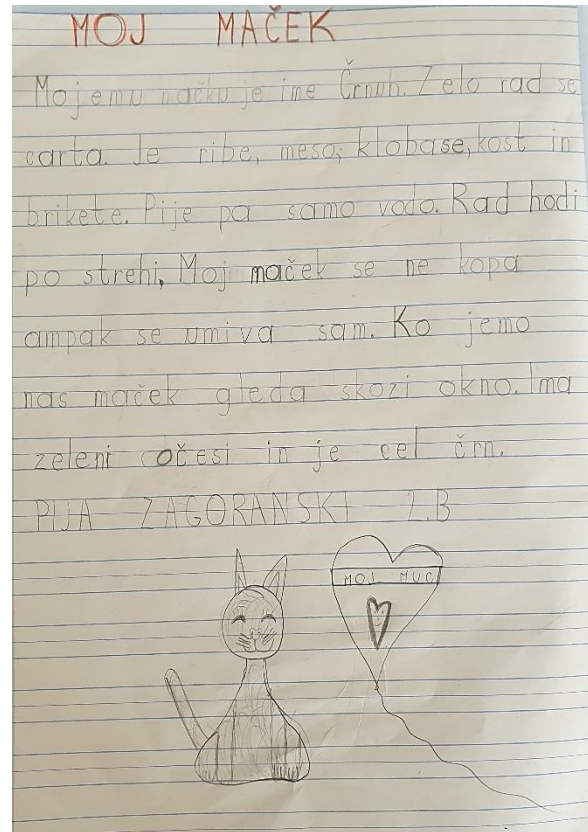 MOJ MAČEK
Mojemu mačku je ime Črnuh. Zelo rad se
carta. Je ribe, meso, klobase, kost in
brikete. Pije pa samo vodo. Rad hodi
po strehi. Moj maček se ne kopa
ampak se umiva sam. Ko jemo
nas maček gleda skozi okno. Ima
zeleni očesi in je cel črn.
PIJA ZAGORANSKI 2.B
MOJ MUC